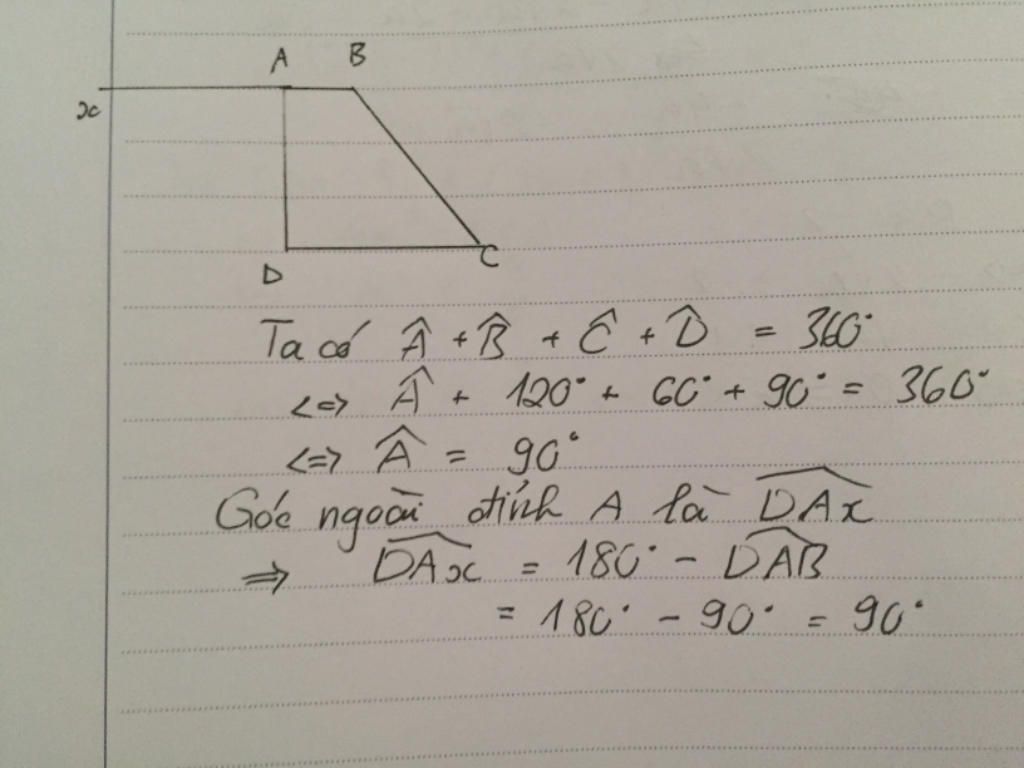 A B
x
D C
Ta có Â + B̂ + Ĉ + D̂ = 360°
<=> Â + 120° + 60° + 90° = 360°
<=> Â = 90°
Góc ngoài đỉnh A là \widehat{DAx}
=> \widehat{DAx} = 180° - \widehat{DAB}
= 180° - 90° = 90°